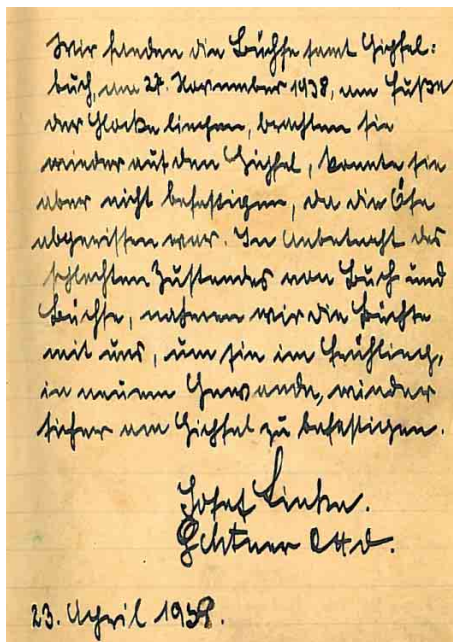 Wir fanden die Büchse samt Gipfel:
buch, am 27. November 1938, am Fuße
der Glocke liechen, brachten sie
wieder auf den Gipfel, konnte sie
aber nicht befestigen, da die Öse
abgerissen war. In Anbetracht des
schlechten Zustandes von Buch und
Büchse, nahmen wir die Büchse
mit uns, um sie im Frühling,
in neuem Gewande, wieder
sicher am Gipfel zu befestigen.
Josef Linke.
Otto.
23. April 1939.